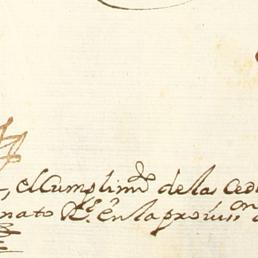 el Cumplim.do de las Ced
nato R.l en la provis.on